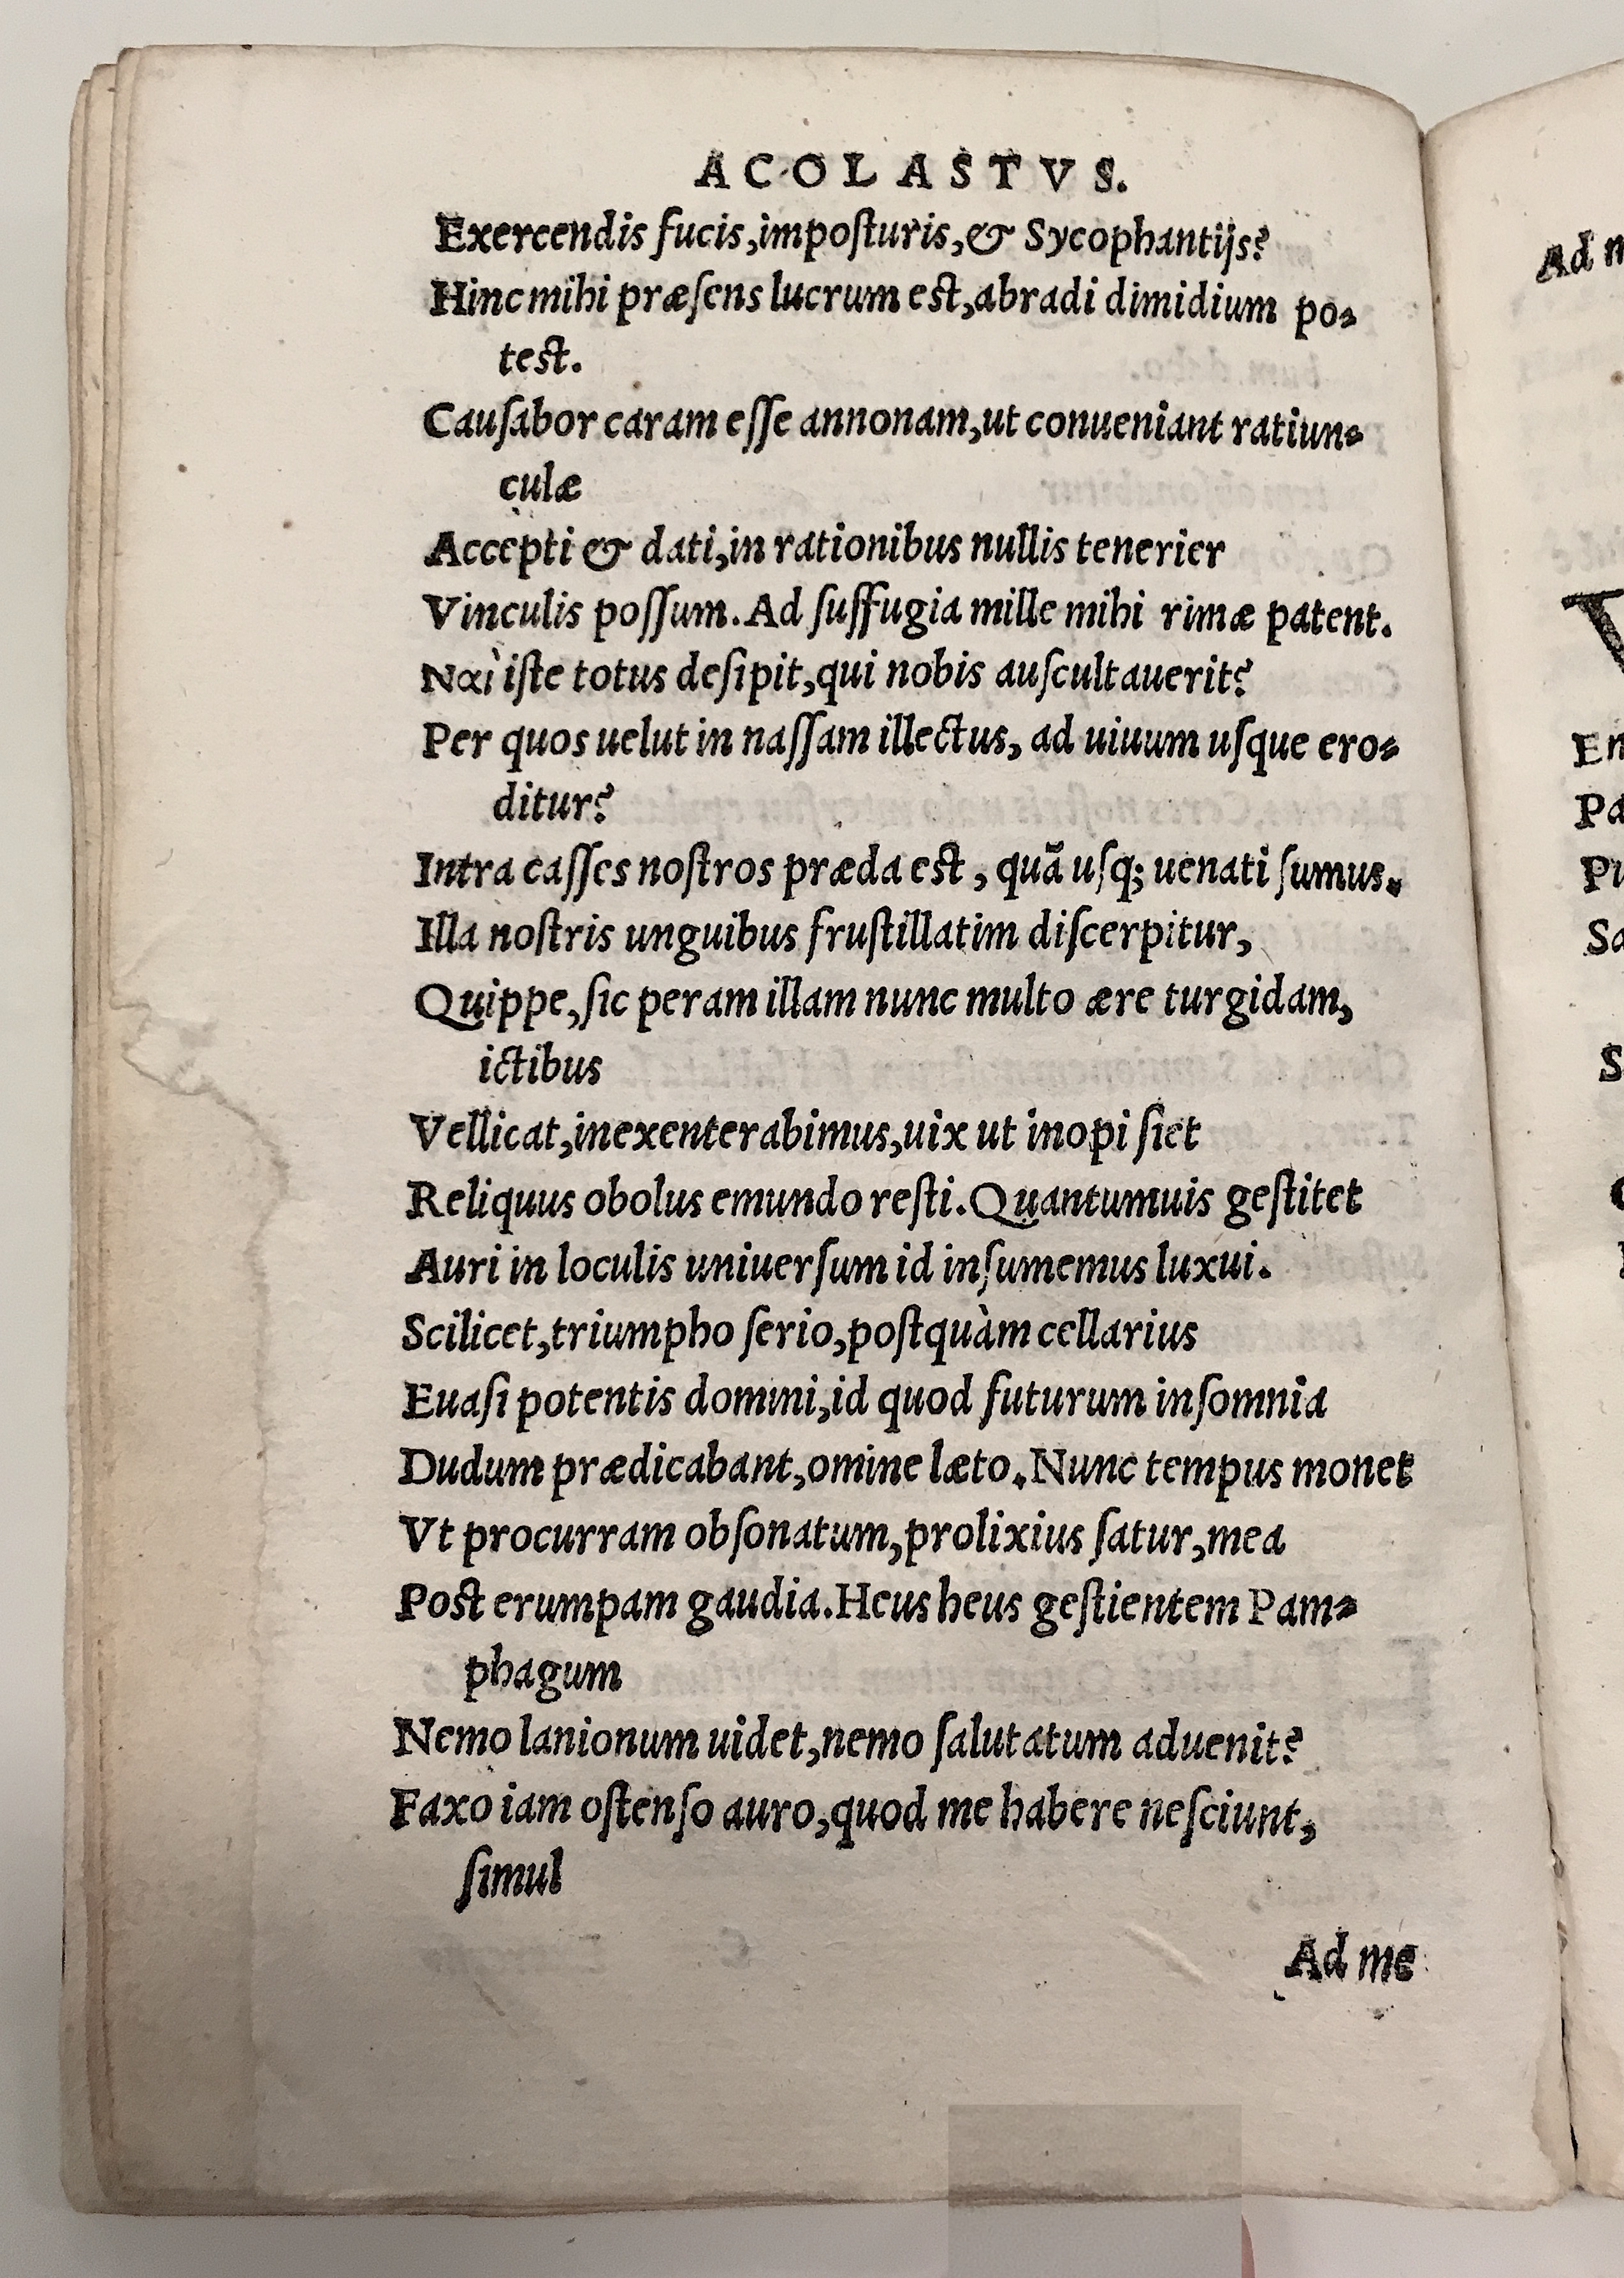 ACOLASTVS.
Exercendis fucis,imposturis,& Sycophantijs?
Hinc mihi præsens lucrum est,abradi dimidium po-
test.
Causabor caram esse annonam,ut conueniant ratiun-
culæ
Accepti & dati,in rationibus nullis tenerier
Vinculis possum.Ad suffugia mille mihi rimæ patent.
Ναὶ iste totus desipit,qui nobis auscultauerit?
Per quos uelut in nassam illectus, ad uiuum usque ero-
ditur?
Intra casses nostros præda est , quã usq; uenati sumus.
Illa nostris unguibus frustillatim discerpitur,
Quippe,sic peram illam nunc multo ære turgidam,
ictibus
Vellicat,inexenterabimus,uix ut inopi siet
Reliquus obolus emundo resti.Quantumuis gestitet
Auri in loculis uniuersum id insumemus luxui.
Scilicet,triumpho serio,postquàm cellarius
Euasi potentis domini,id quod futurum insomnia
Dudum prædicabant,omine læto.Nunc tempus monet
Vt procurram obsonatum,prolixius satur,mea
Post erumpam gaudia.Heus heus gestientem Pam-
phagum
Nemo lanionum uidet,nemo salutatum aduenit?
Faxo iam ostenso auro,quod me habere nesciunt,
simul
Ad me
Ad m
En
Pa
Sa
S